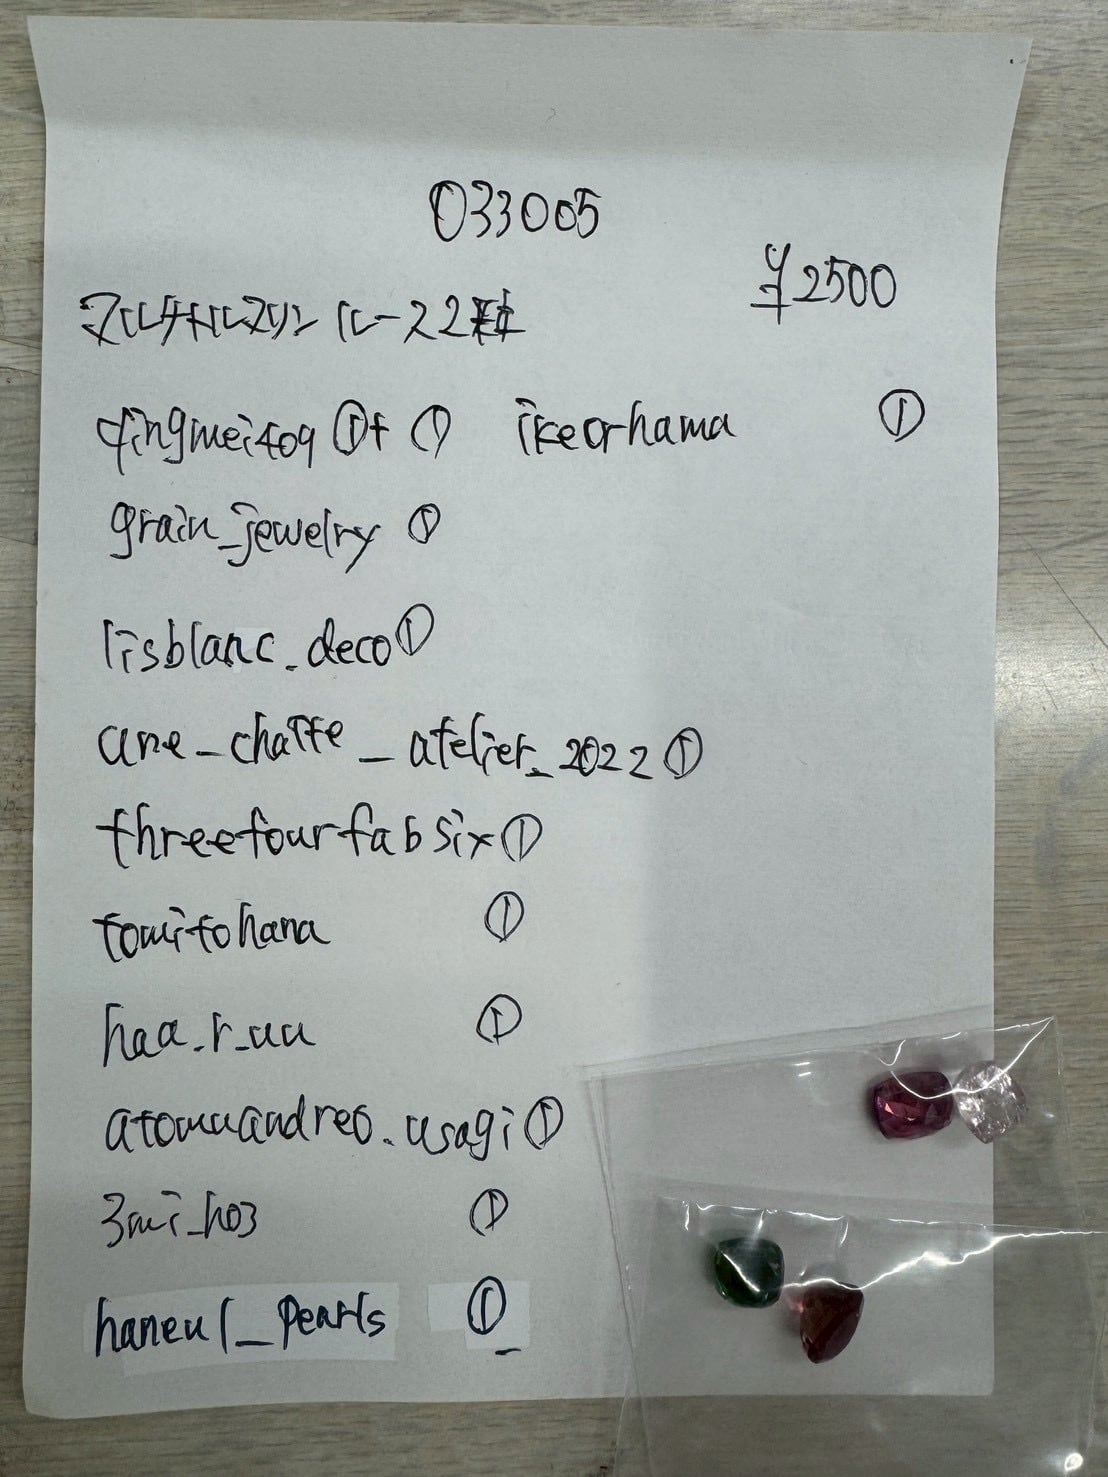 033005
¥2500
マルチトルマリン ルース2粒
qingmei409 ①+① ikeorhama ①
grain_jewelry ①
lisblanc_deco ①
une_chatte_atelier_2022 ①
threefourfabsix ①
tomitohana ①
haa_r_uu ①
atomuandreo.usagi ①
3mi_ho3 ①
haneul_pearls ①